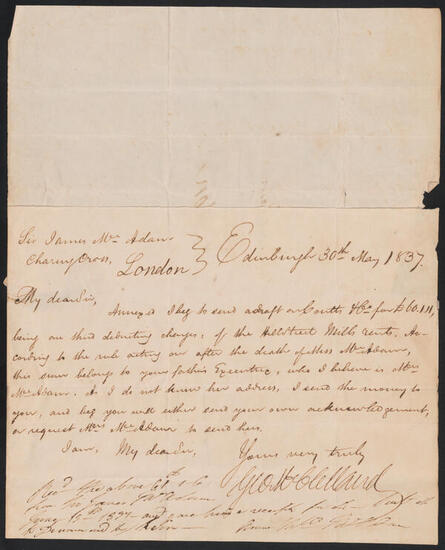 Sir James McAdam
Charing Cross,
London
Edinburgh 30th May 1837.
My dear Sir,
Annexed I beg to send a draft on Coutts & Co for £60.1.11,
being one third deducting charges, of the Hillstreet Mills rents. Ac-
cording to the rule acting on after the death of Miss McAdam,
this sum belongs to your father's Executrix, who I believe is Mrs
McAdam. As I do not know her address, I send the money to
you, and beg you will either send your own acknowledgement,
or request Mrs McAdam to send hers.
I am, My dear Sir,
Yours very truly
Geo McClelland
Recd the above
for Sir James McAdam
1837 and gave him a receipt for